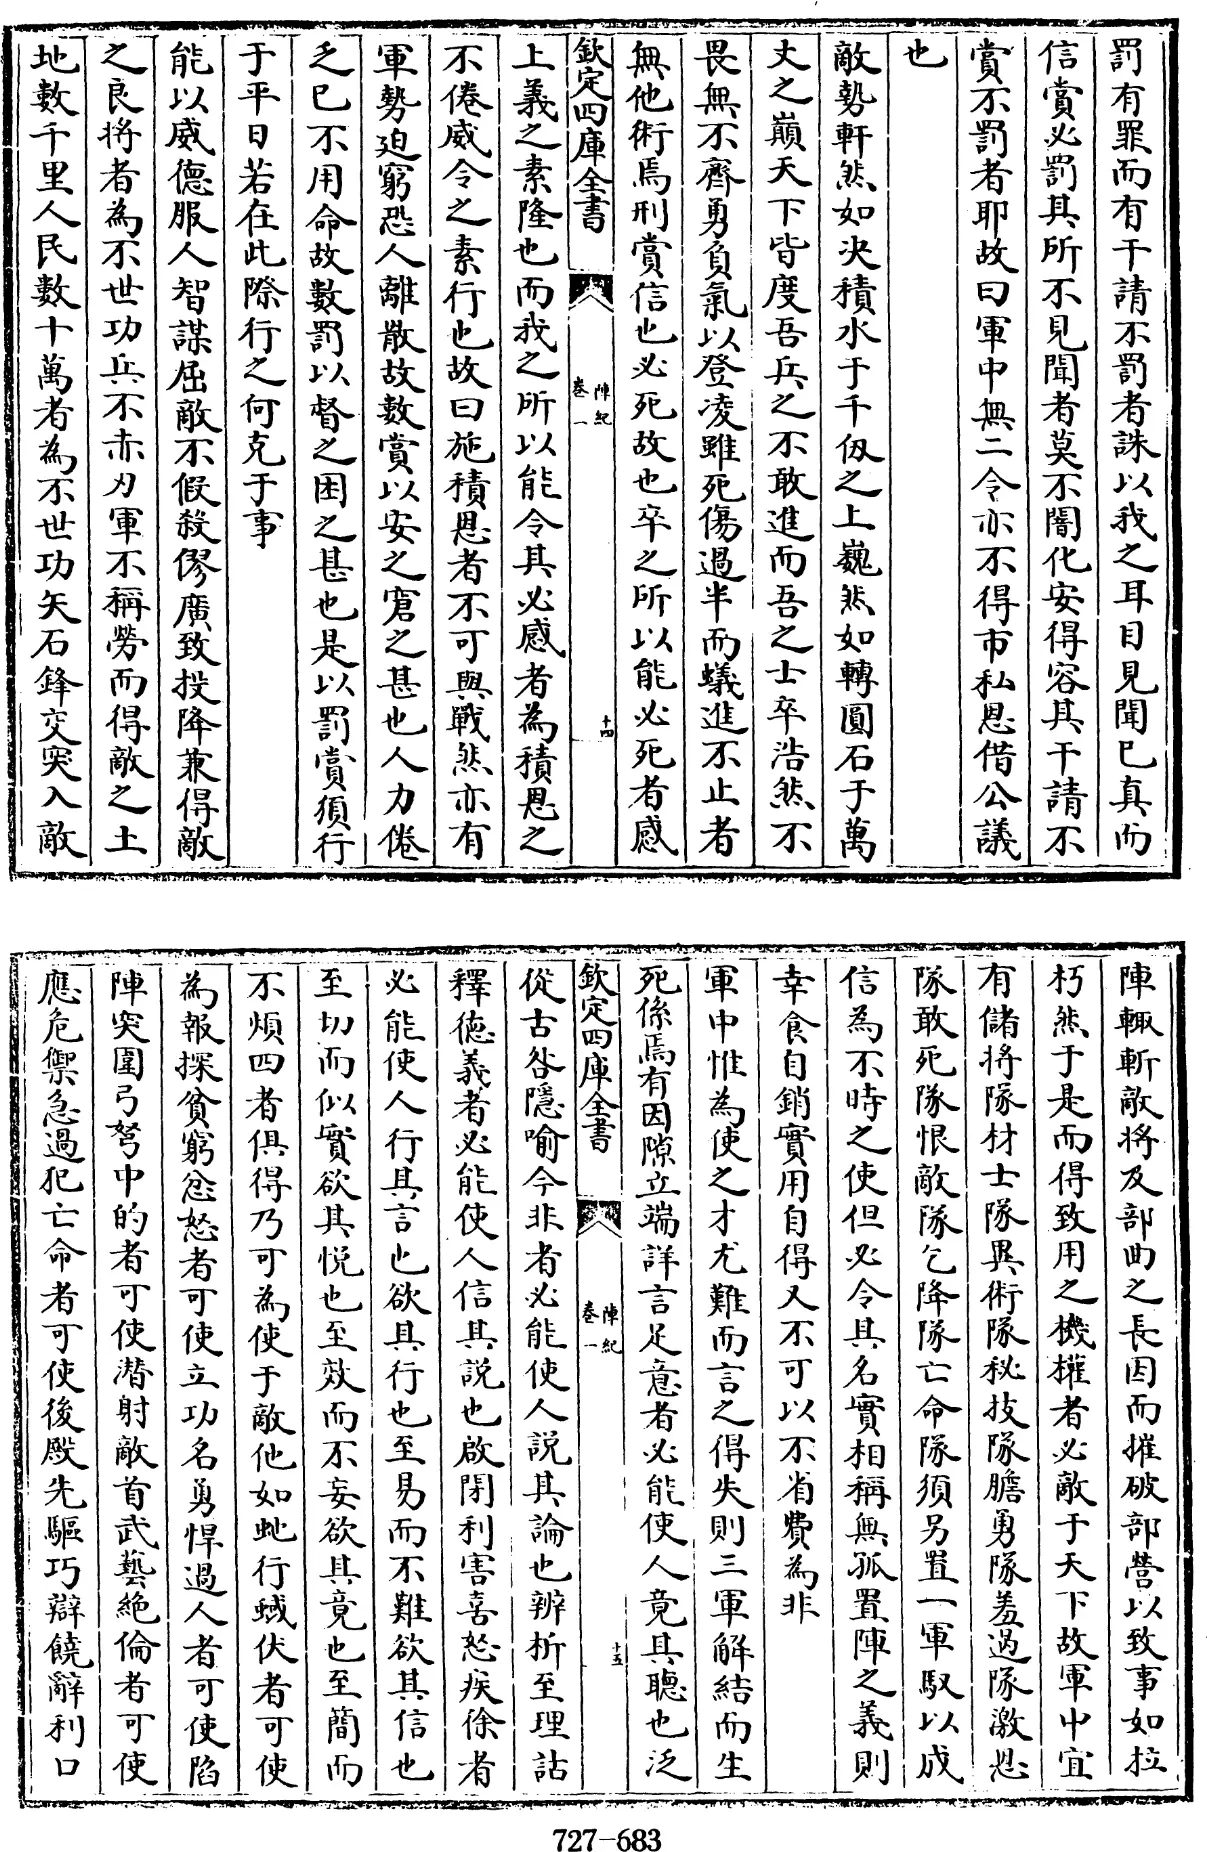 罰有罪而有干請不罰者誅以我之耳目見聞已真而
信賞必罰其所不見聞者莫不闇化安得容其干請不
賞不罰者耶故曰軍中無二令亦不得市私恩借公議
也
敵勢軒然如决積水于千仭之上巍然如轉圓石于萬
丈之巔天下皆度吾兵之不敢進而吾之士卒浩然不
畏無不齊勇負氣以登凌雖死傷過半而蟻進不止者
無他術焉刑賞信也必死故也卒之所以能必死者感
欽定四庫全書 陣紀 卷一 十四
上義之素隆也而我之所以能令其必感者為積恩之
不倦威令之素行也故曰施積恩者不可與戰然亦有
軍勢迫窮恐人離散故數賞以安之窘之甚也人力倦
乏已不用命故數罰以督之困之甚也是以罰賞須行
于平日若在此際行之何克于事
能以威德服人智謀屈敵不假殺僇廣致投降兼得敵
之良將者為不世功兵不亦刃軍不稱勞而得敵之土
地數千里人民數十萬者為不世功矢石鋒交突入敵
陣輙斬敵將及部曲之長因而摧破部營以致事如拉
朽然于是而得致用之機權者必敵于天下故軍中宜
有儲將隊材士隊異術隊秘技隊膽勇隊羞過隊激恩
隊敢死隊恨敵隊乞降隊亡命隊須另置一軍馭以成
信為不時之使但必令其名實相稱無孤置陣之義則
幸食自銷實用自得又不可以不省費為非
軍中惟為使之才尤難而言之得失則三軍解結而生
死係焉有因隙立端詳言足意者必能使人竟其聽也泛
欽定四庫全書 陣紀 卷一 十五
從古咎隱喻今非者必能使人説其論也辨析至理詁
釋德義者必能使人信其說也啟閉利害喜怒疾徐者
必能使人行其言也欲其行也至易而不難欲其信也
至切而似實欲其悦也至效而不妄欲其竟也至簡而
不煩四者俱得乃可為使于敵他如虵行蜮伏者可使
為報探貧窮忿怒者可使立功名勇悍過人者可使陷
陣突圍弓弩中的者可使潛射敵首武藝絶倫者可使
應危禦急過犯亡命者可使後殿先驅巧辯饒辭利口
727-683